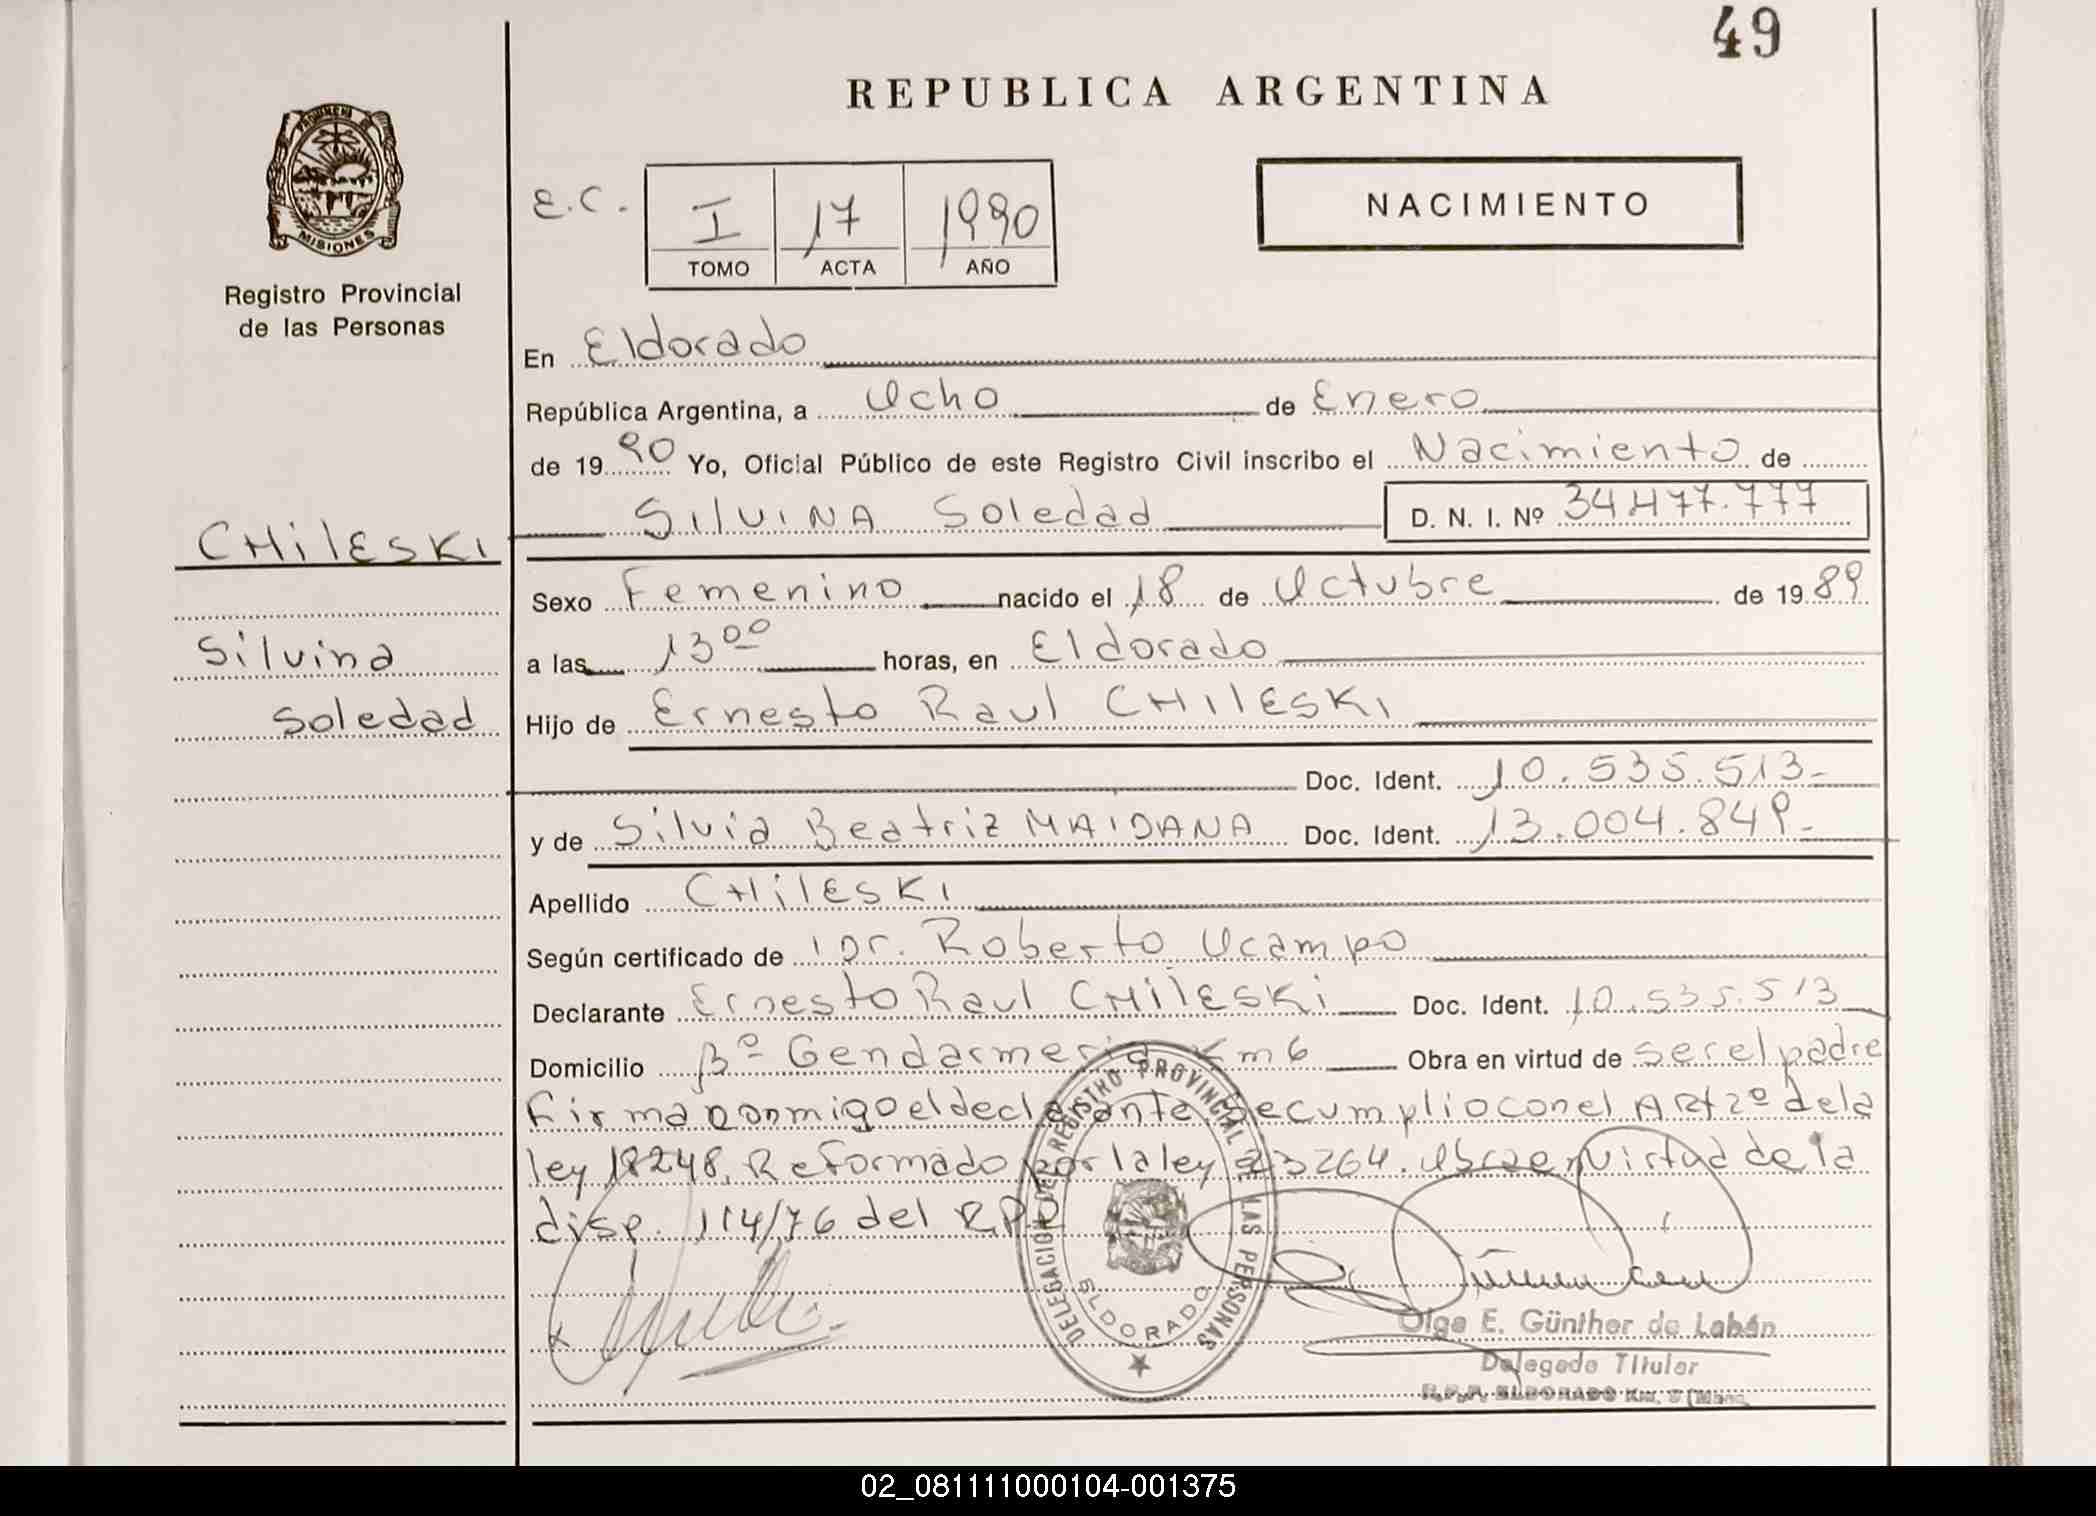 49
REPUBLICA ARGENTINA
PROVINCIA DE
MISIONES
Registro Provincial
de las Personas
E.C.
I 17 1990
TOMO ACTA AÑO
NACIMIENTO
En Eldorado
República Argentina, a Ocho de Enero
de 1990 Yo, Oficial Público de este Registro Civil inscribo el Nacimiento de
SILVINA Soledad D. N. I. Nº 34.477.777
CHILESKI
Silvina
Soledad
Sexo Femenino nacido el 18 de Octubre de 1989
a las 13⁰⁰ horas, en Eldorado
Hijo de Ernesto Raul CHILESKI
Doc. Ident. 10.535.513-
y de Silvia Beatriz MAIDANA Doc. Ident. 13.004.849-
Apellido CHILESKI
Según certificado de Dr. Roberto Ocampo
Declarante Ernesto Raul CHILESKI Doc. Ident. 10.535.513
Domicilio Bº Gendarmeria Km 6 Obra en virtud de ser el padre
Firma conmigo el declarante. Se cumplio con el ART 2º de la
ley 18248, Reformado por la ley 23264. Obra en virtud de la
disp. 114/76 del R.P.P
DELEGACION DEL REGISTRO PROVINCIAL DE LAS PERSONAS
ELDORADO
Olga E. Günther de Labán
Delegado Titular
R.P.P. ELDORADO Km.
02_081111000104-001375